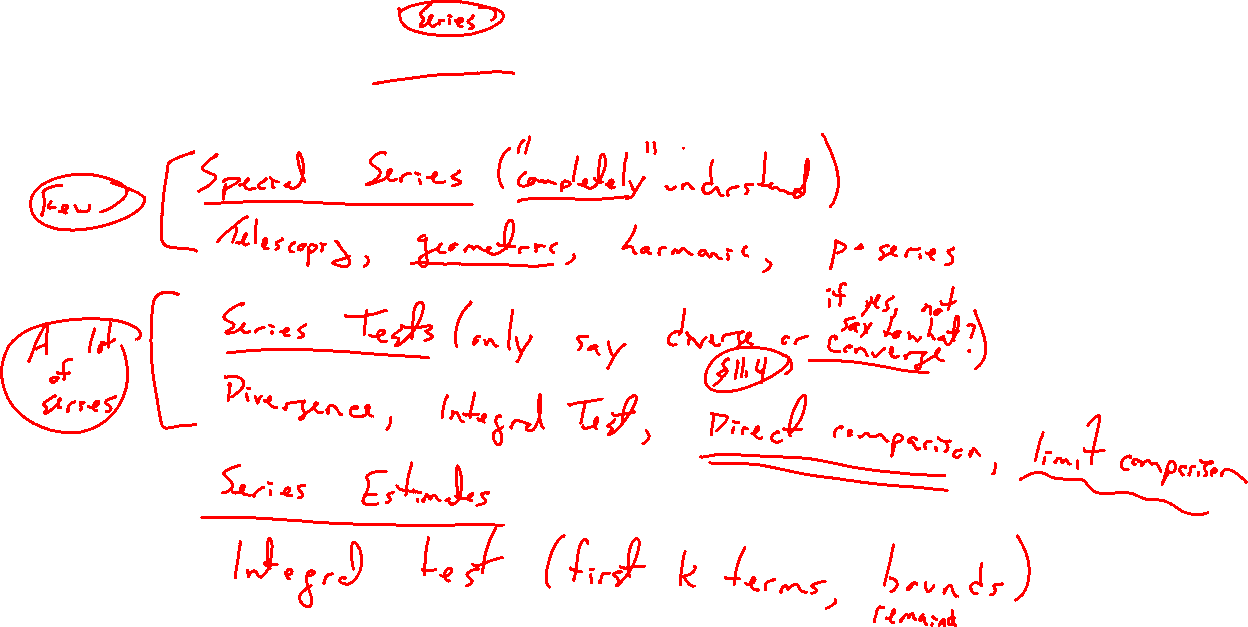 Series
Few
Special Series ("completely" understand)
Telescoping, geometric, harmonic, p-series
A lot of series
Series Tests (only say diverge or converge)
if yes, not say to what?
§11.4
Divergence, Integral Test, Direct comparison, limit comparison
Series Estimates
Integral test (first k terms, bounds)
remaind